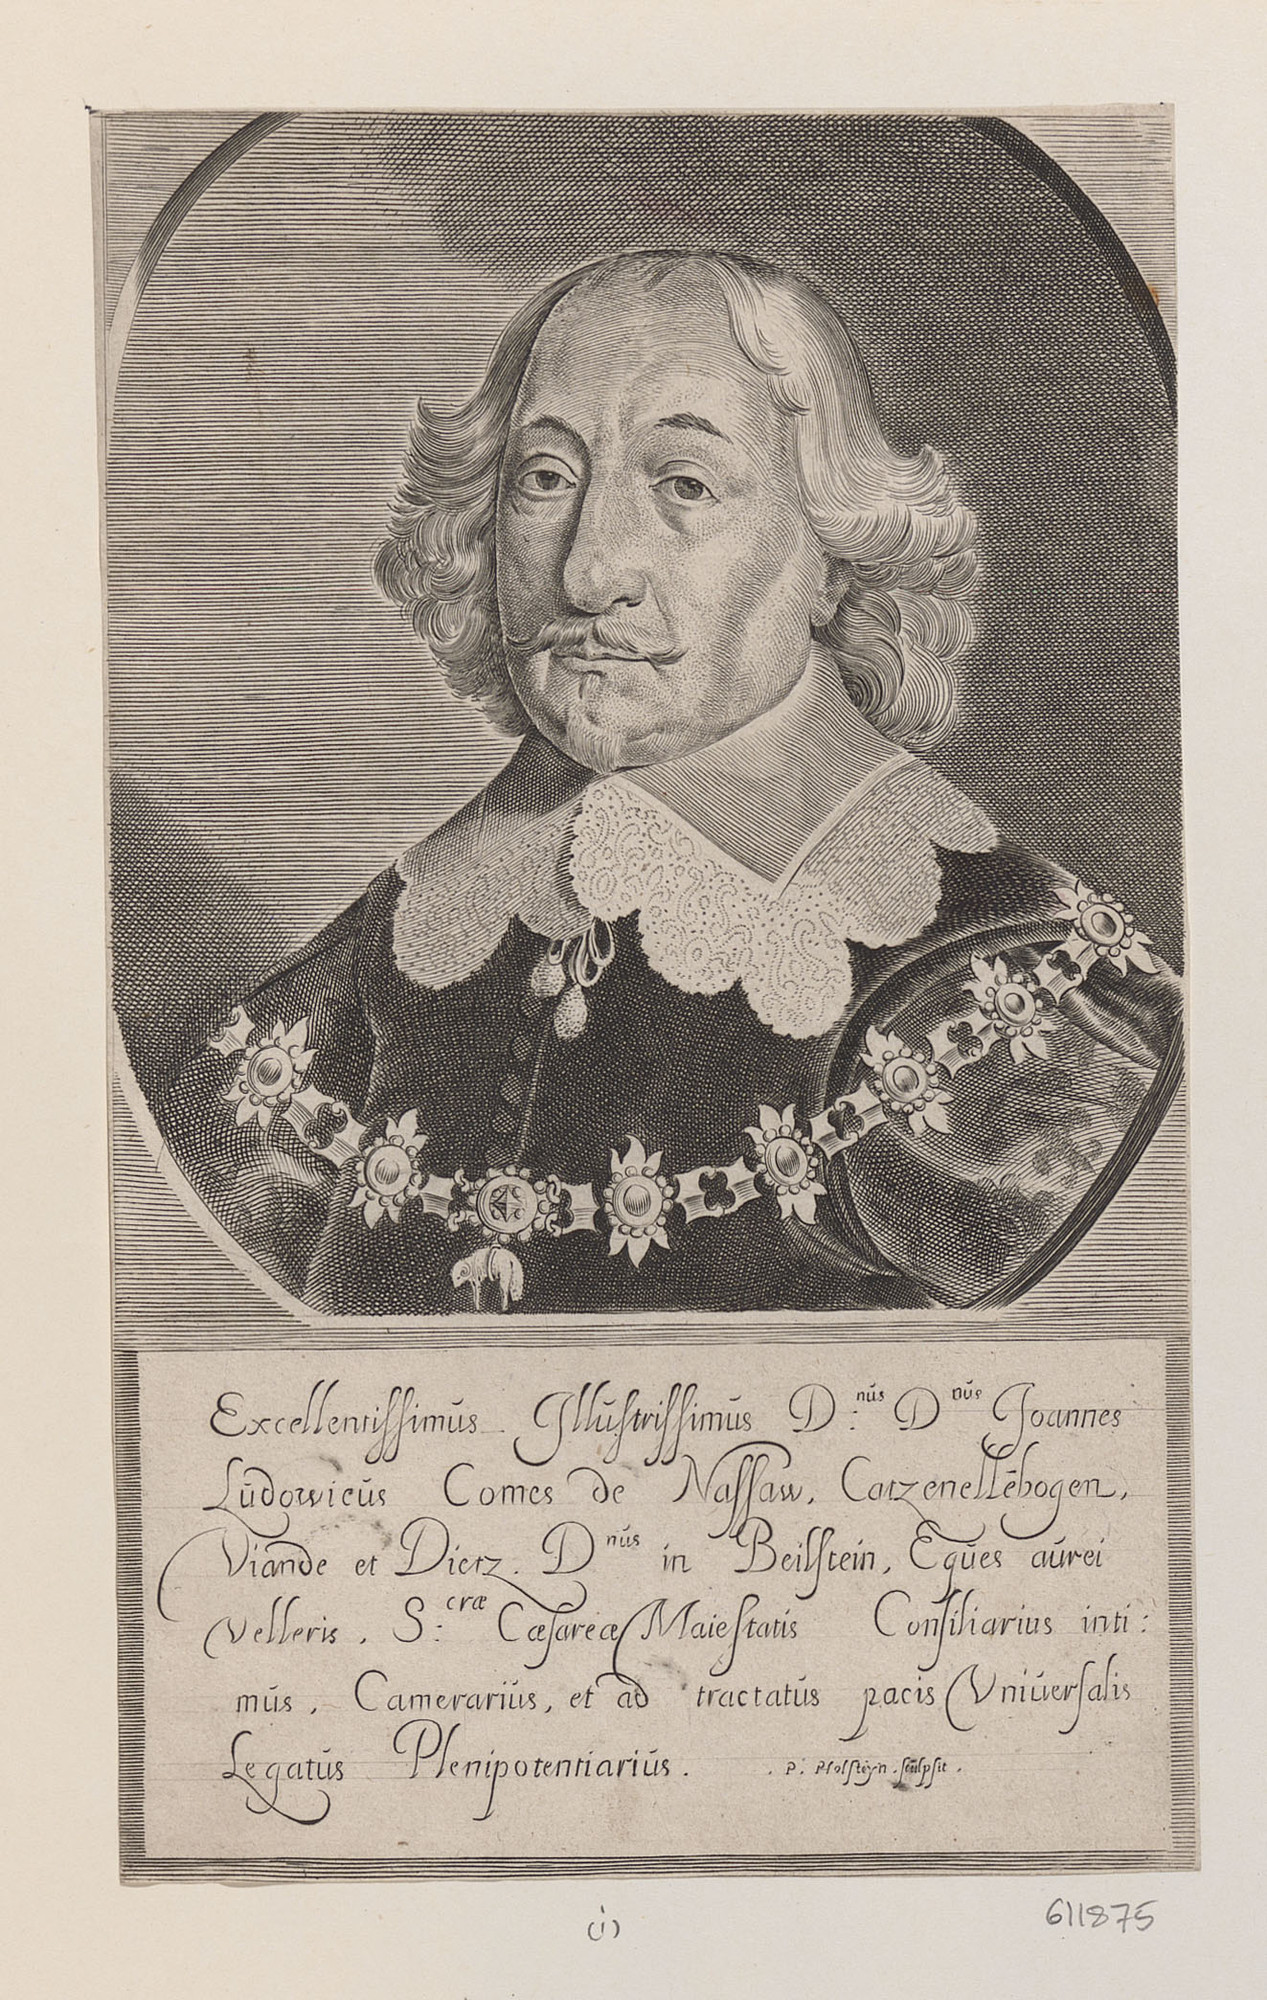 Excellentissimus Illustrissimus D:nus Dnus Joannes
Ludowicus Comes de Nassaw, Catzenellebogen,
Viande et Dietz. Dnus in Beilstein, Eques aurei
Velleris, S:cræ Cæsareæ Maiestatis Consiliarius inti:
mus, Camerarius, et ad tractatus pacis Universalis
Legatus Plenipotentiarius.
P: Holsteyn. sculpsit.
(i)
611875